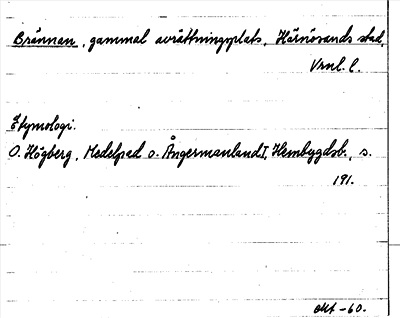 Brännan, gammal avrättningsplats, Härnösands stad,
Vrnl. l.
Etymologi.
O. Högberg, Medelpad o. Ångermanland I, Hembygdsb., s.
191.
okt -60.